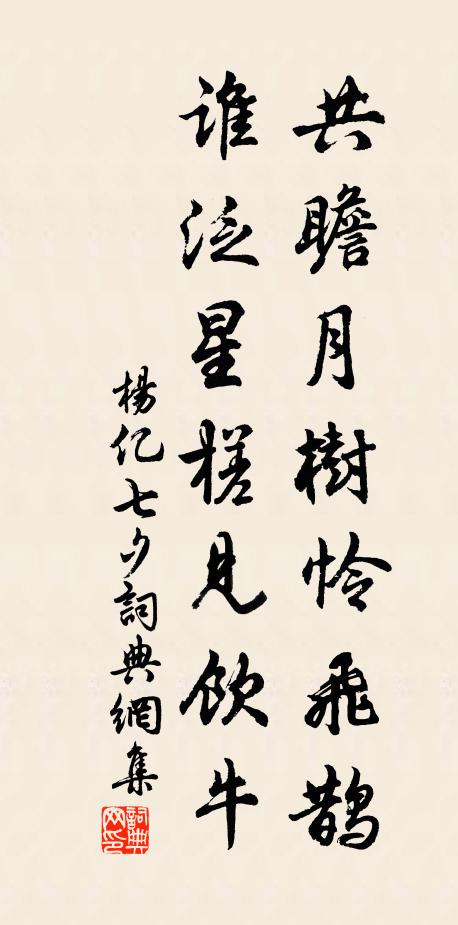 共瞻月樹怜飛鵲
誰泛星槎見飲牛
楊亿七夕詞典網集
詞典网印